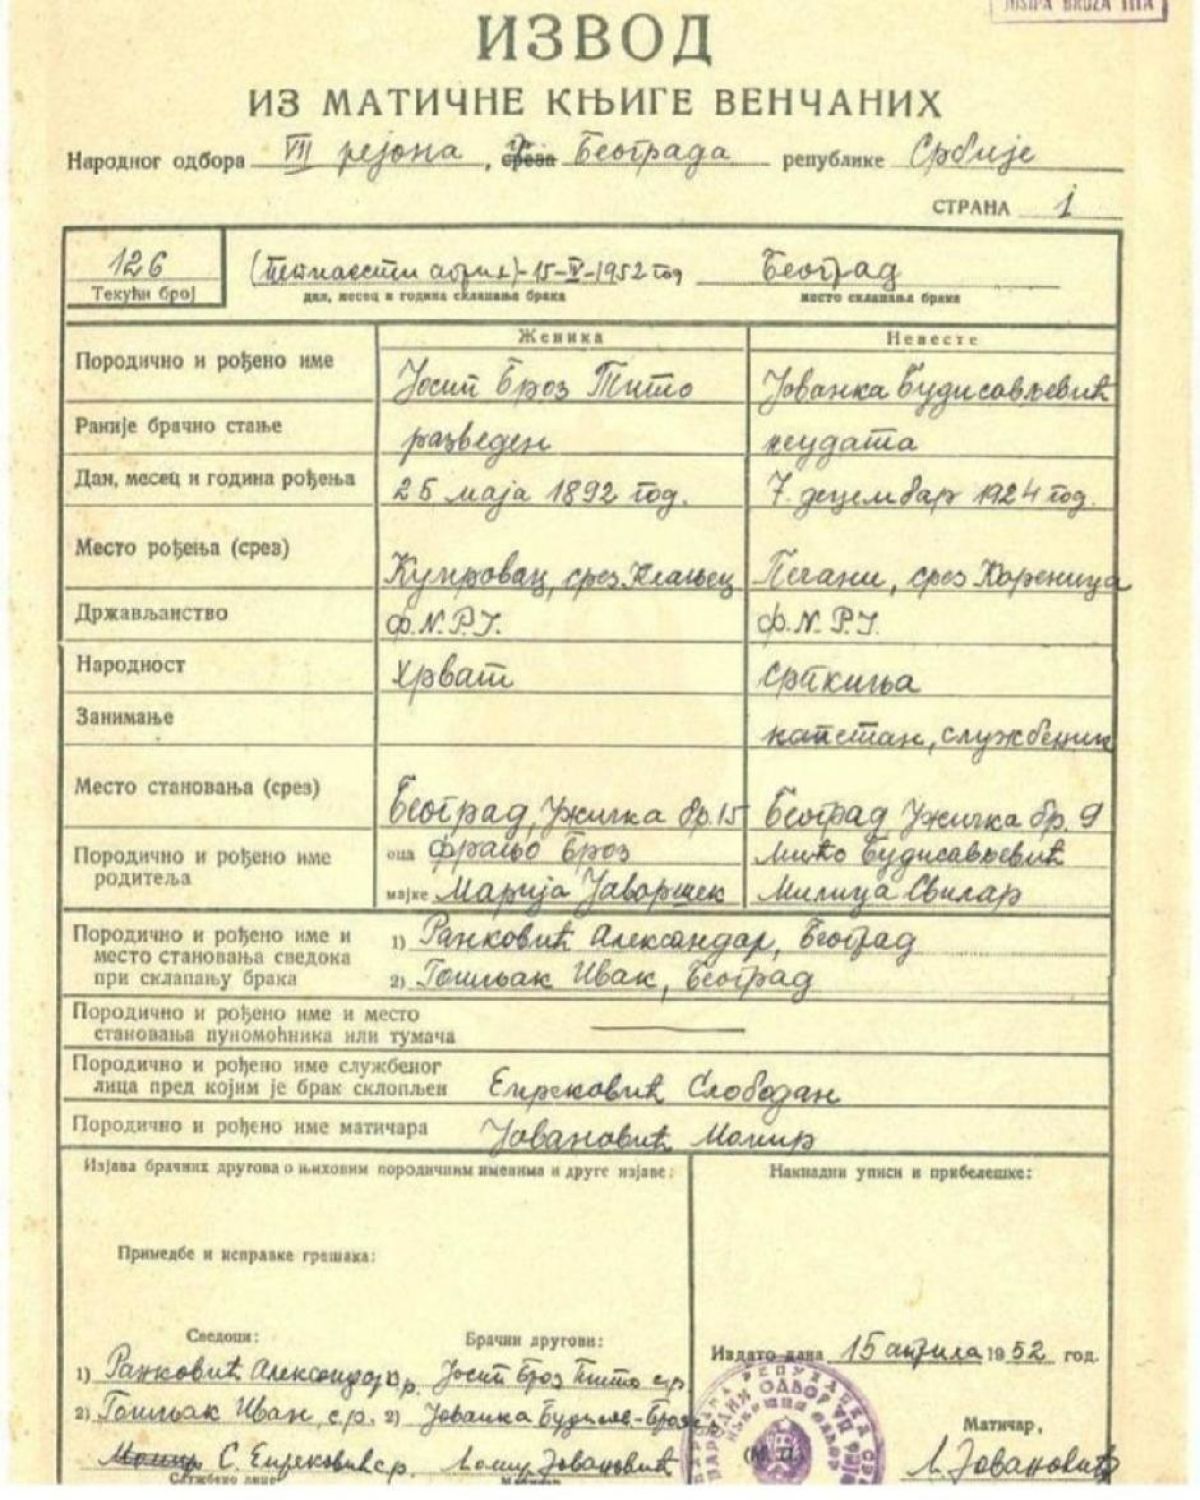 ЈОСИПА БРОЗА ТИТА
ИЗВОД
ИЗ МАТИЧНЕ КЊИГЕ ВЕНЧАНИХ
Народног одбора VII рејона, среза Београда републике Србије
СТРАНА 1
126 (петнаести април)-15-IV-1952 год Београд
Текући број дан, месец и година склапања брака место склапања брака
Женика Невесте
Породично и рођено име Јосип Броз Тито Јованка Будисављевић
Раније брачно стање разведен неудата
Дан, месец и година рођења 25 маја 1892 год. 7. децембар 1924 год.
Место рођења (срез) Кумровац, срез Клањец Пећани, срез Кореница
Држављанство Ф.N.Р.Ј. Ф.N.Р.Ј.
Народност хрват српкиња
Занимање капетан, службеник
Место становања (срез) Београд, Ужичка бр. 15 Београд Ужичка бр. 9
Породично и рођено име оца Фрањо Броз Мићо Будисављевић
родитеља мајке Марија Јаворшек Милица Свилар
Породично и рођено име и 1) Ранковић Александар, Београд
место становања сведока
при склапању брака 2) Гошњак Иван, Београд
Породично и рођено име и место
становања пуномоћника или тумача
Породично и рођено име службеног
лица пред којим је брак склопљен Слободан
Породично и рођено име матичара Јовановић Момир
Изјава брачних другова о њиховим породичним именима и друге изјаве: Накнадни уписи и прибелешке:
Примедбе и исправке грешака:
Сведоци: Брачни другови:
Издато дана 15 априла 1952 год.
1) Ранковић Александар с.р. Јосип Броз Тито с.р.
2) Гошњак Иван, с.р. 2) Јованка Будисав-Броз
Матичар,
Момир С. с.р. Момир Јовановић (М. П.) М. Јовановић
Службено лице Матичар